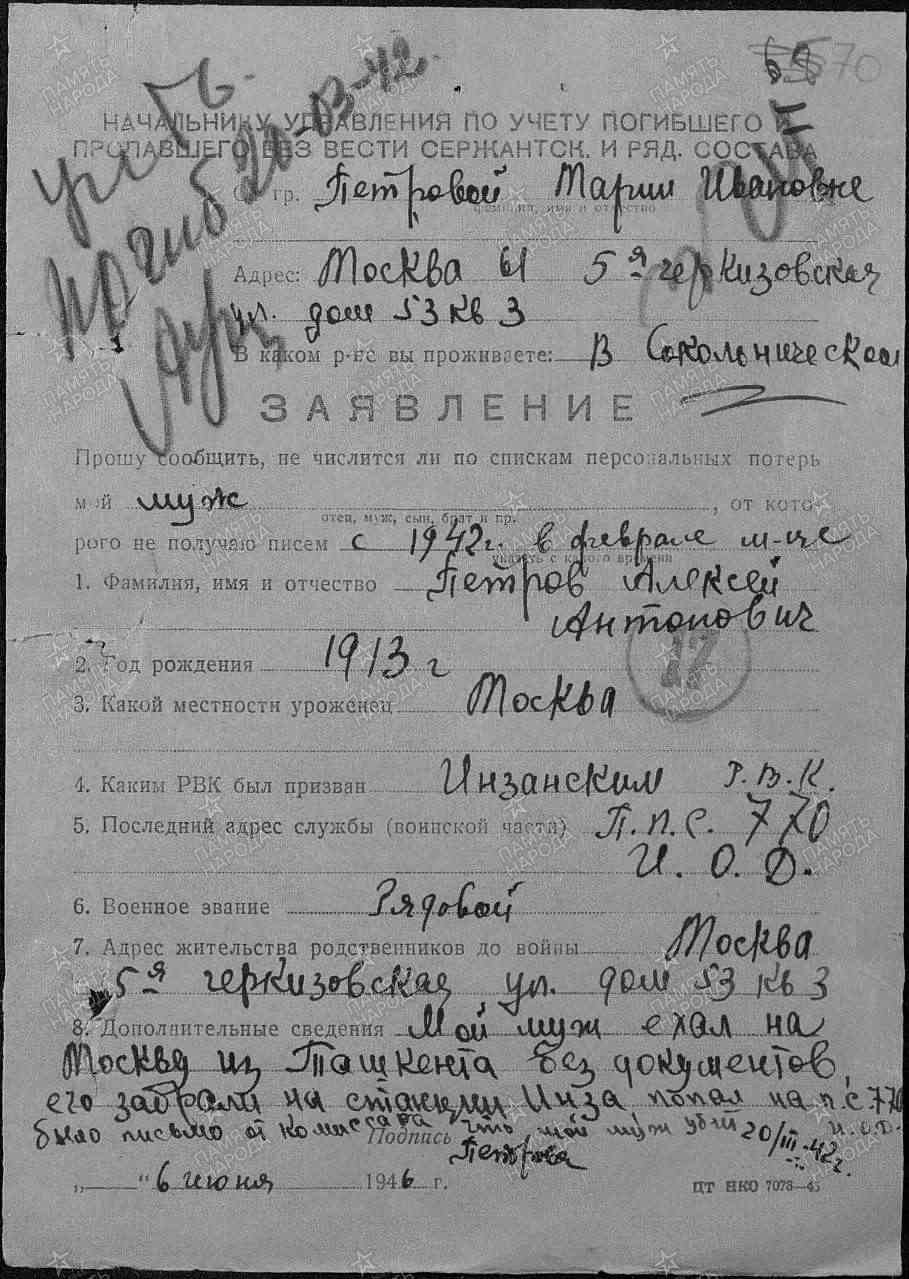 70
НАЧАЛЬНИКУ УПРАВЛЕНИЯ ПО УЧЕТУ ПОГИБШЕГО И
ПРОПАВШЕГО БЕЗ ВЕСТИ СЕРЖАНТСК. И РЯД. СОСТАВА
погиб 20-03-42
От гр. Петровой Марии Ивановне
фамилия, имя и отчество
Адрес: Москва 61 5я черкизовская
ул. дом 53 кв 3
В каком р-не вы проживаете: В Сокольническом
ЗАЯВЛЕНИЕ
Прошу сообщить, не числится ли по спискам персональных потерь
мой муж, от кото-
отец, муж, сын, брат и пр.
рого не получаю писем с 1942г. в феврале м-це
указать с какого времени
1. Фамилия, имя и отчество Петров Алексей
Антонович
17
2. Год рождения 1913 г
3. Какой местности уроженец Москва
4. Каким РВК был призван Инзанским Р.В.К.
5. Последний адрес службы (воинской части) П.п.с. 770
И. О. Д.
6. Военное звание Рядовой
7. Адрес жительства родственников до войны Москва
5я черкизовская ул. дом 53 кв 3
8. Дополнительные сведения Мой муж ехал на
Москву из Ташкента без документов,
его забрали на станции Инза попал на п.с 770
И.О.Д.
было письмо от комиссара что мой муж убит 20/III-42г.
Подпись Петрова
„ “ 6 июня 1946 г.
ЦТ НКО 7073—45
ПАМЯТЬ НАРОДА